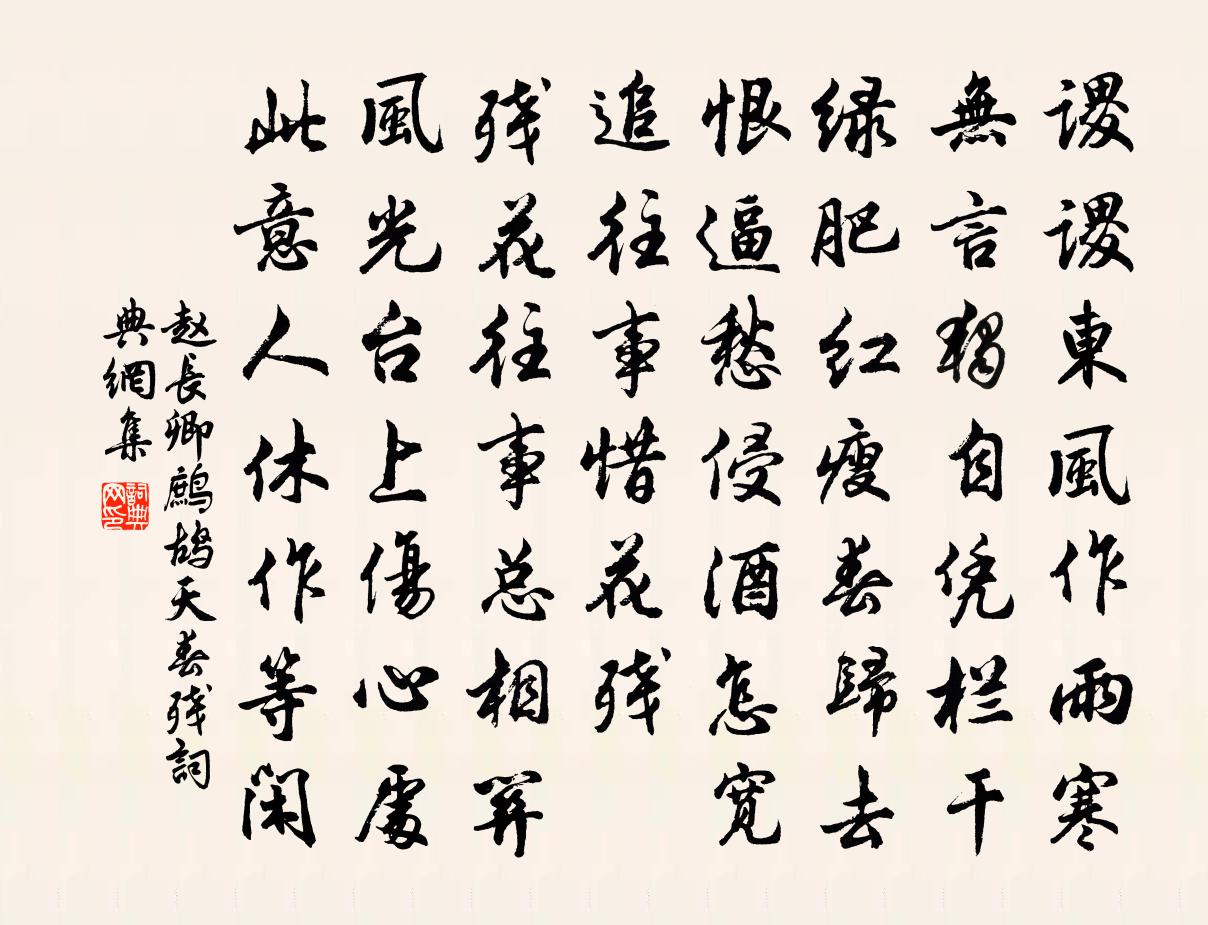 谡谡東風作雨寒
無言獨自凭栏干
緑肥红瘦春歸去
恨逼愁侵酒怎寬
追往事惜花残
残花往事总相關
風光台上傷心處
此意人休作等闲
赵長卿鹧鸪天春残詞
典網集
詞典网印